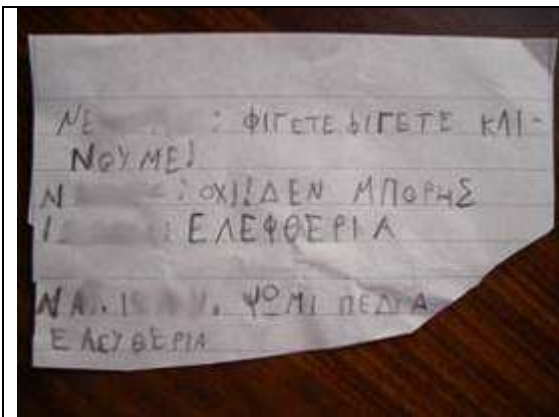 ΝΕ : ΦΙΓΕΤΕ ΦΙΓΕΤΕ ΚΛΙ-
ΝΟΥΜΕ!
Ν : ΟΧΙ! ΔΕΝ ΜΠΟΡΗΣ
Ι : ΕΛΕΦΘΕΡΙΑ
ΝΑ. Ι . ΨΟΜΙ ΠΕΔΙΑ
ΕΛΕΥΘΕΡΙΑ